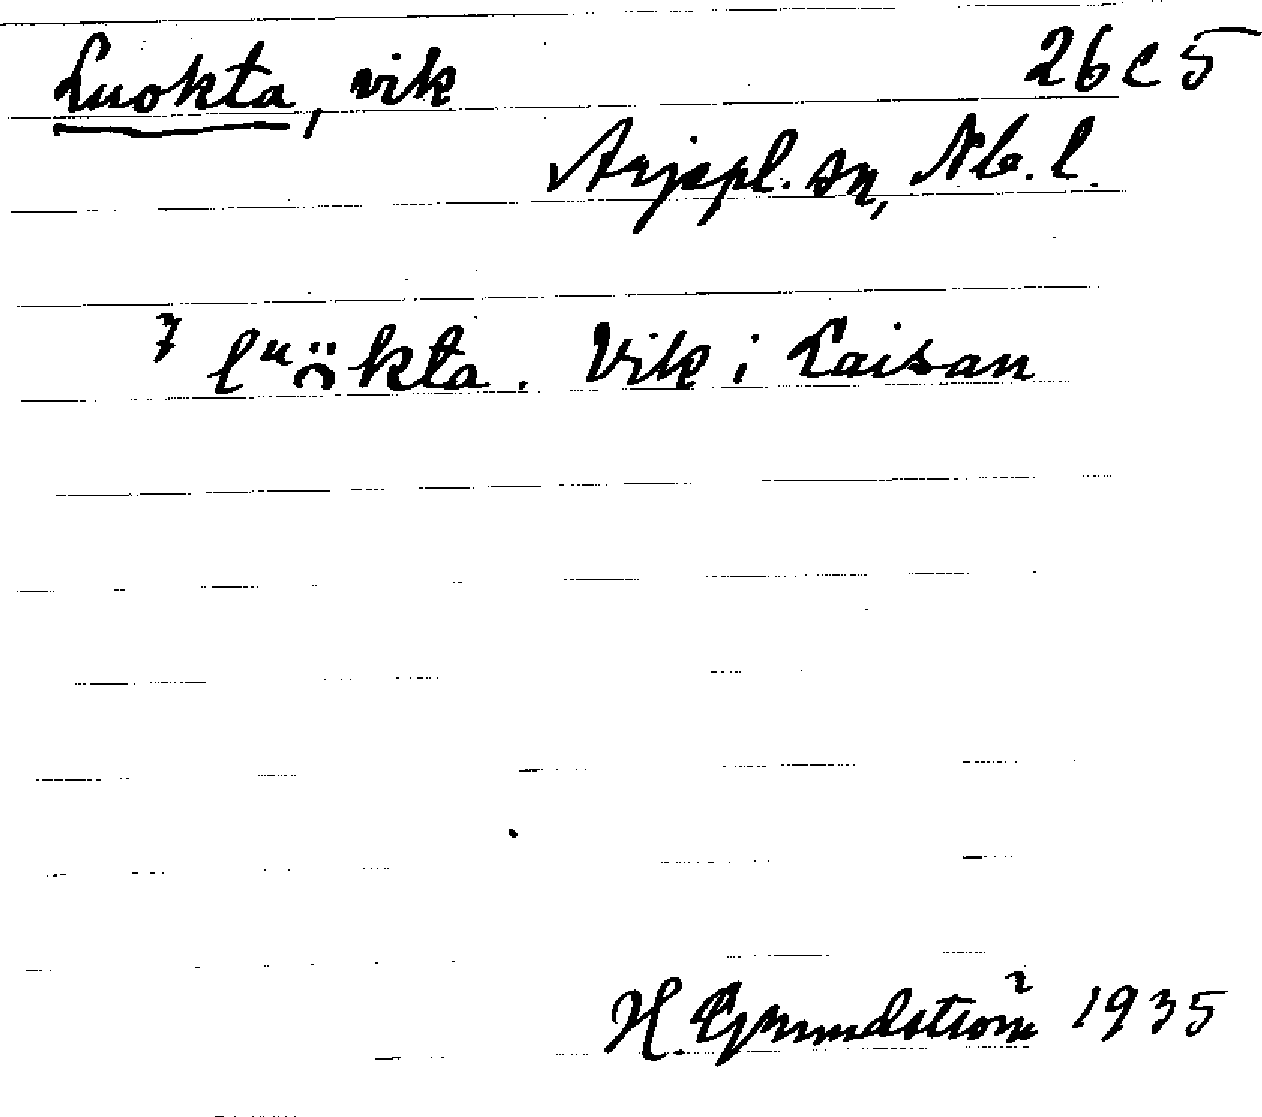 Luokta, vik 26 C 5
Arjepl. sn, Nb. l.
7 lᵘökta. Vik i Laisan
H. Grundström 1935